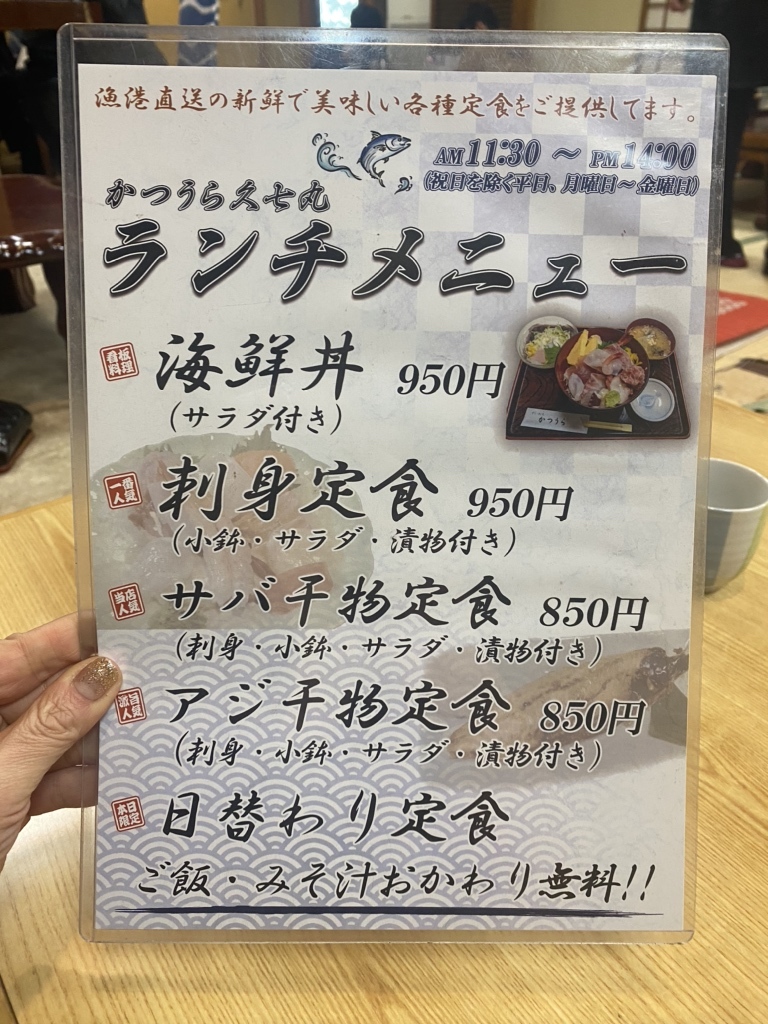 漁港直送の新鮮で美味しい各種定食をご提供してます。
AM11:30 ～ PM14:00
(祝日を除く平日、月曜日～金曜日)
かつうら久七丸
ランチメニュー
看板料理
海鮮丼 950円
(サラダ付き)
かつうら
一番人気
刺身定食 950円
(小鉢・サラダ・漬物付き)
当店人気
サバ干物定食 850円
(刺身・小鉢・サラダ・漬物付き)
アジ干物定食 850円
(刺身・小鉢・サラダ・漬物付き)
本日限定
日替わり定食
ご飯・みそ汁おかわり無料!!